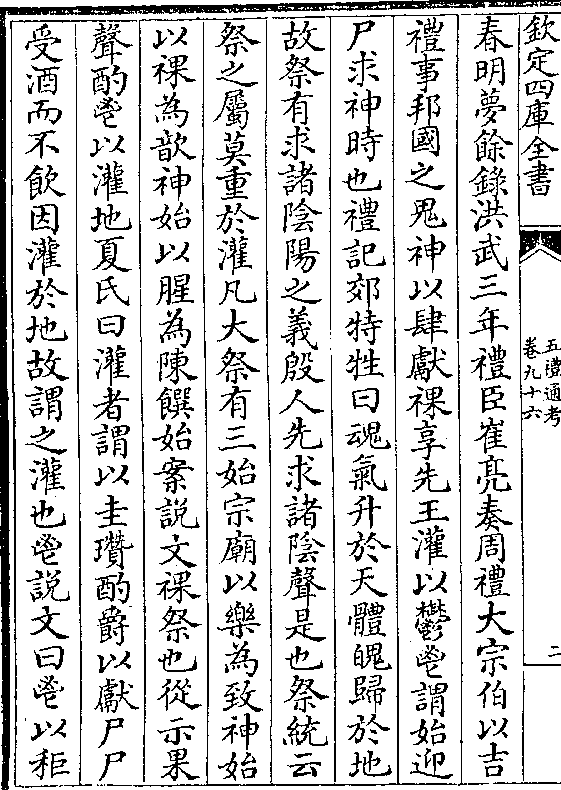 欽定四庫全書
五禮通考
卷九十六
二
春明夢餘錄洪武三年禮臣崔亮奏周禮大宗伯以吉
禮事邦國之鬼神以肆獻祼享先王灌以鬱鬯謂始迎
尸求神時也禮記郊特牲曰魂氣升於天體魄歸於地
故祭有求諸陰陽之義殷人先求諸陰聲是也祭統云
祭之屬莫重於灌凡大祭有三始宗廟以樂為致神始
以祼為歆神始以腥為陳饌始案説文祼祭也從示果
聲酌鬯以灌地夏氏曰灌者謂以圭瓚酌爵以獻尸尸
受酒而不飲因灌於地故謂之灌也鬯説文曰鬯以秬